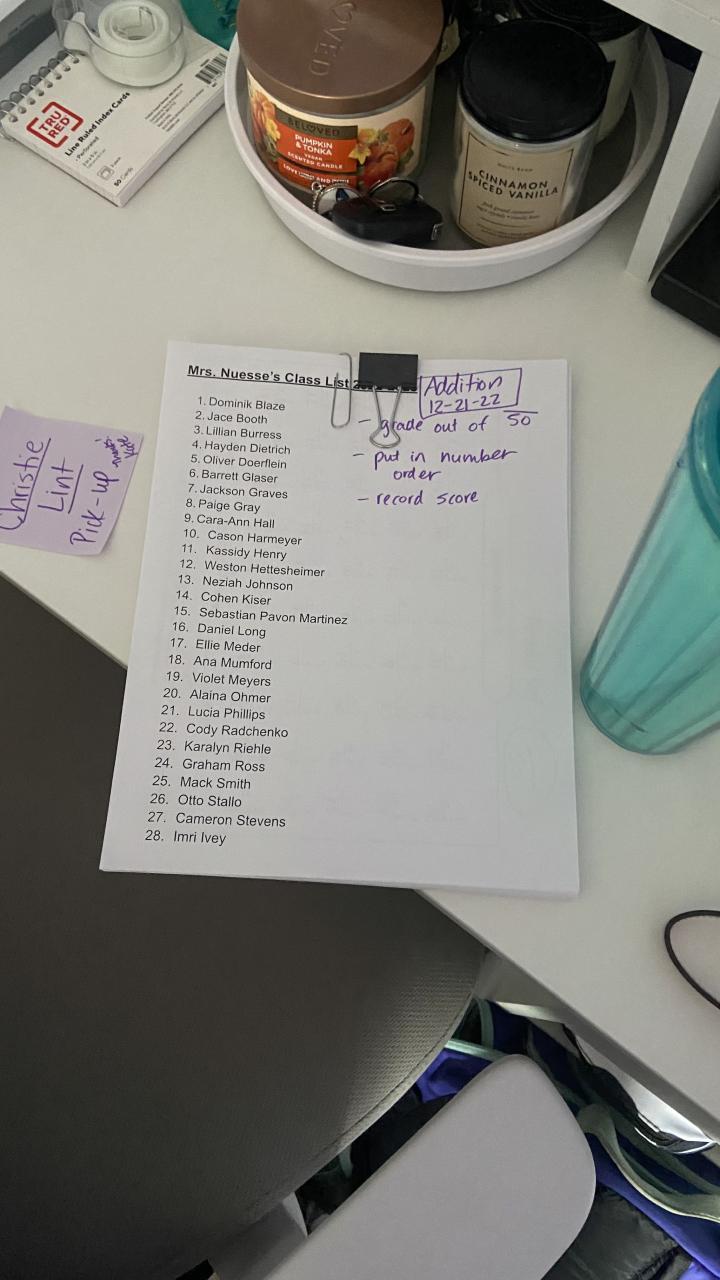 TRU RED
Line Ruled Index Cards
Perforated
50 Cards
LOVED
BELOVED
PUMPKIN
& TONKA
VEGAN
SCENTED CANDLE
CINNAMON
SPICED VANILLA
Mrs. Nuesse's Class List
1. Dominik Blaze
2. Jace Booth
3. Lillian Burress
4. Hayden Dietrich
5. Oliver Doerflein
6. Barrett Glaser
7. Jackson Graves
8. Paige Gray
9. Cara-Ann Hall
10. Cason Harmeyer
11. Kassidy Henry
12. Weston Hettesheimer
13. Neziah Johnson
14. Cohen Kiser
15. Sebastian Pavon Martinez
16. Daniel Long
17. Ellie Meder
18. Ana Mumford
19. Violet Meyers
20. Alaina Ohmer
21. Lucia Phillips
22. Cody Radchenko
23. Karalyn Riehle
24. Graham Ross
25. Mack Smith
26. Otto Stallo
27. Cameron Stevens
28. Imri Ivey
Addition
12-21-22
- grade out of 50
- put in number
order
- record score
Christie
Lint
Pick-up